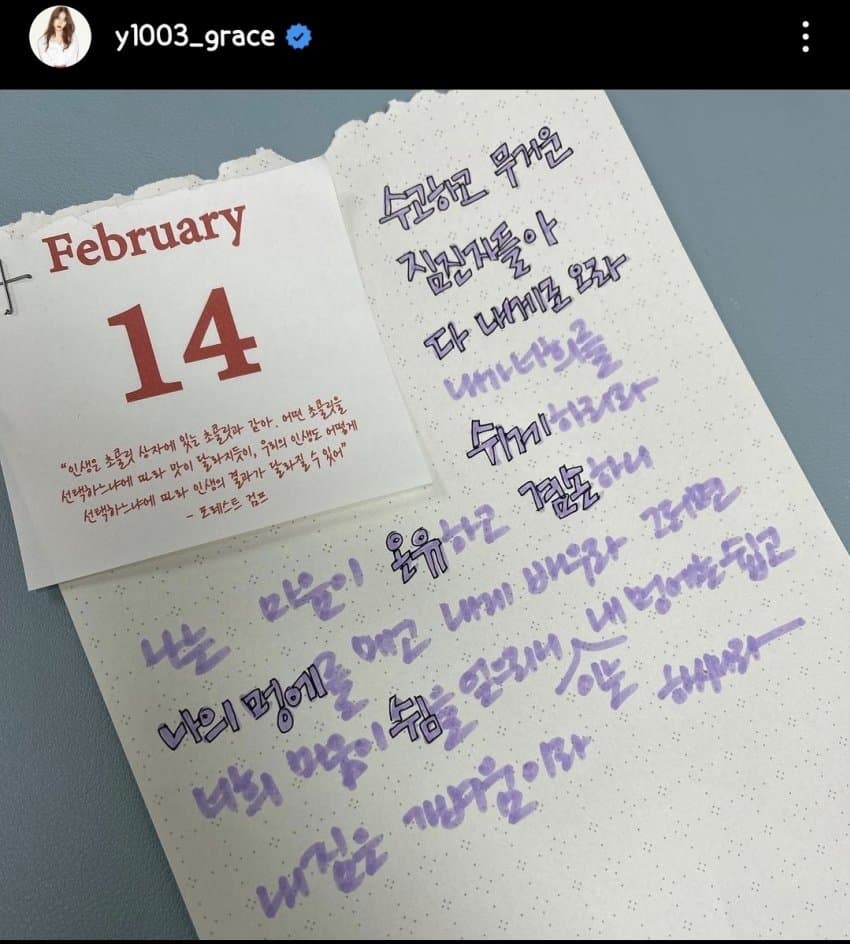 y1003_grace
February
14
“인생은 초콜릿 상자에 있는 초콜릿과 같아. 어떤 초콜릿을
선택하느냐에 따라 맛이 달라지듯이, 우리의 인생도 어떻게
선택하느냐에 따라 인생의 결과가 달라질 수 있어”
- 포레스트 검프
수고하고 무거운
짐진자들아
다 내게로 오라
내가 너희를
쉬게하리라
나는 마음이 온유하고 겸손하니
나의 멍에를 메고 내게 배우라 그러면
너희 마음이 쉼을 얻으리니 내 멍에는 쉽고
이는 하시니라
내 짐은 가벼움이라